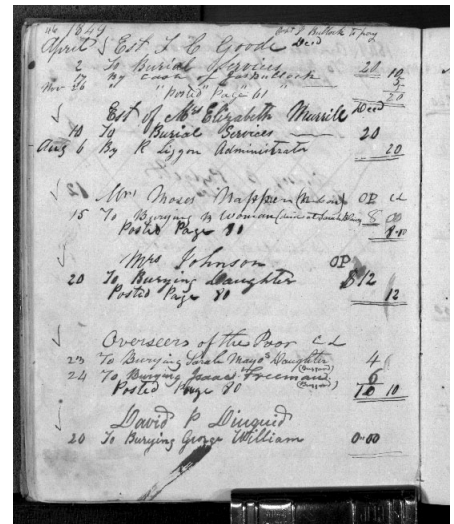 116 1849
Jas P Bullock to pay
April 5 Est L C Goode Decd
2 To Burial Services 20
17 By cash of Jas Bullock 10
Nov 26 " " 5
"Posted" Page 61 " 20
Est of Mrs Elizabeth Murrill Decd
10 To Burial Services 20
Aug 6 By R Liggon Administrator 20
Mrs Moses OP Cd
15 To Burying woman 8 00
Posted Page 80 8.00
Mrs Johnson OP
20 To Burying Daughter 12
Posted Page 80 12
Overseers of the Poor Cd
23 To Burying Sarah Mayo's Daughter 4
24 To Burying Isaac Freeman 6
Posted Page 80 10 10
David P Diuguid
20 To Burying George William 0.00